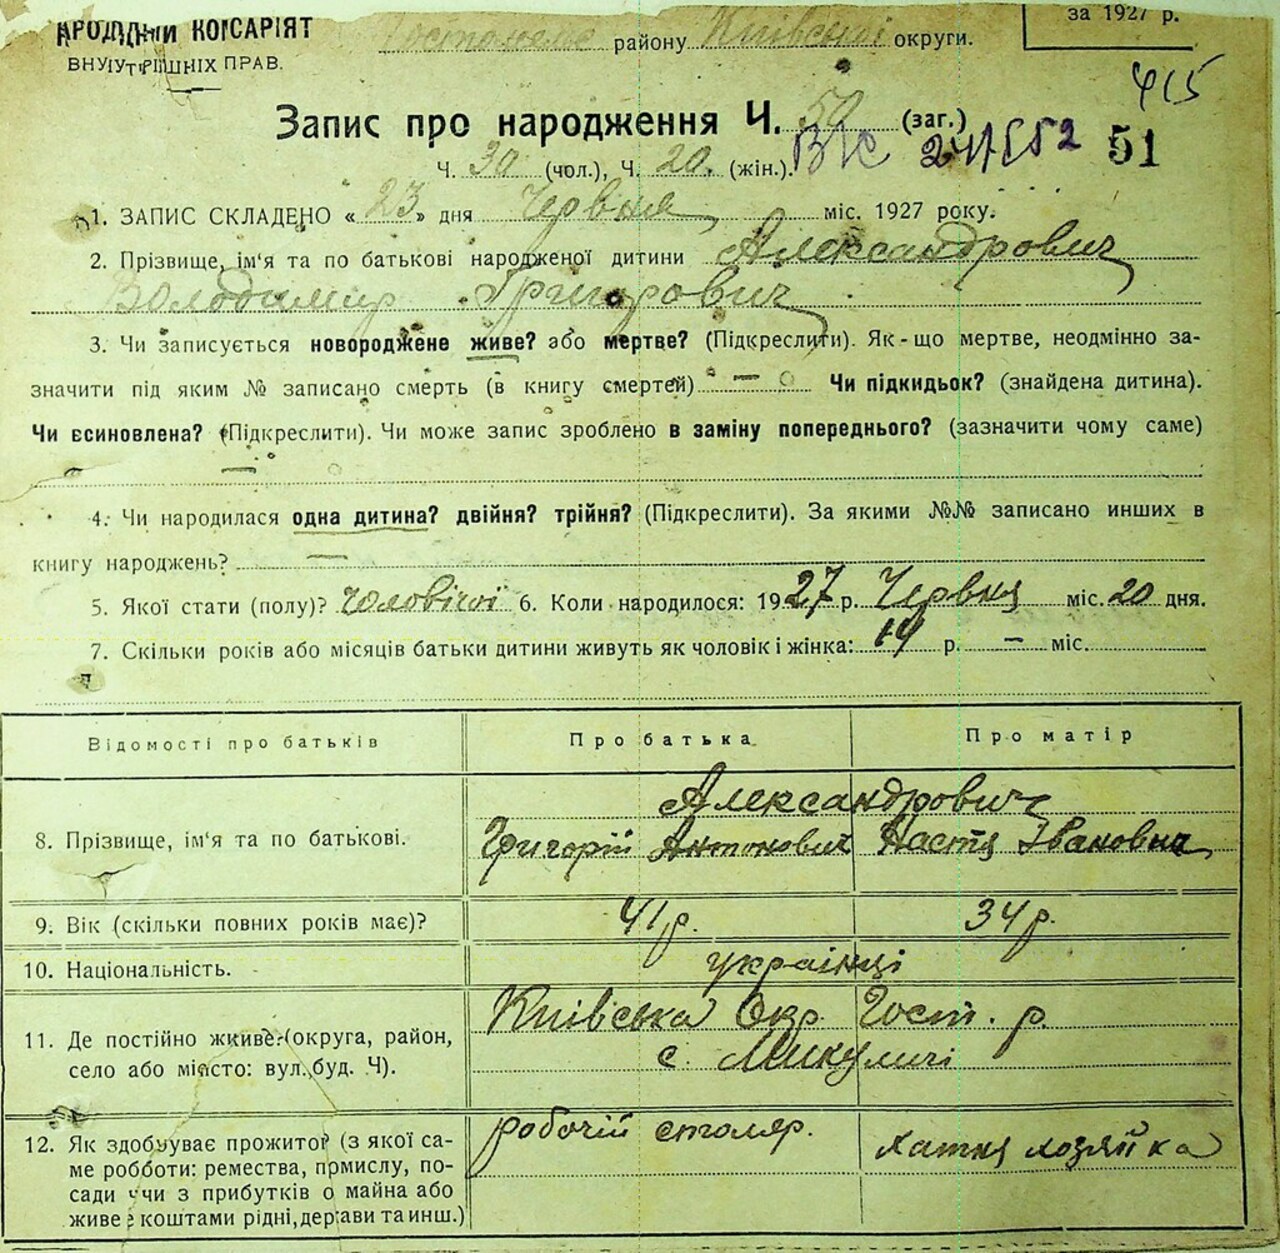 НАРОДНІЙ КОМІСАРІЯТ
ВНУТРІШНІХ ПРАВ.
району Київської округи.
за 1927 р.
415
Запис про народження Ч. 50 (заг.)
51
Ч. 30 (чол.), Ч. 20. (жін.).
1. ЗАПИС СКЛАДЕНО « 23 » дня Червня міс. 1927 року.
2. Прізвище, ім'я та по батькові народженої дитини Александрович
Володимир Григорович
3. Чи записується новороджене живе? або мертве? (Підкреслити). Як-що мертве, неодмінно за-
значити під яким № записано смерть (в книгу смертей) — Чи підкидьок? (знайдена дитина).
Чи всиновлена? (Підкреслити). Чи може запис зроблено в заміну попереднього? (зазначити чому саме)
—
4. Чи народилася одна дитина? двійня? трійня? (Підкреслити). За якими №№ записано инших в
книгу народжень? —
5. Якої стати (полу)? Чоловічої 6. Коли народилося: 1927 р. Червня міс. 20 дня.
7. Скільки років або місяців батьки дитини живуть як чоловік і жінка: 14 р. — міс.
Відомості про батьків Про батька Про матір
8. Прізвище, ім'я та по батькові. Александрович
Григорій Антонович Настя Івановна
9. Вік (скільки повних років має)? 41 р. 34 р.
10. Національність. українці
11. Де постійно живе? (округа, район,
село або місто: вул. буд. Ч).
Київська Окр. Гост. р.
с. Микуличі
12. Як здобуває прожиток? (з якої са-
ме робботи: ремества, промислу, по-
сади чи з прибутків о майна або
живе коштами рідні, держави та инш.)
робочій столяр. хатня хозяйка